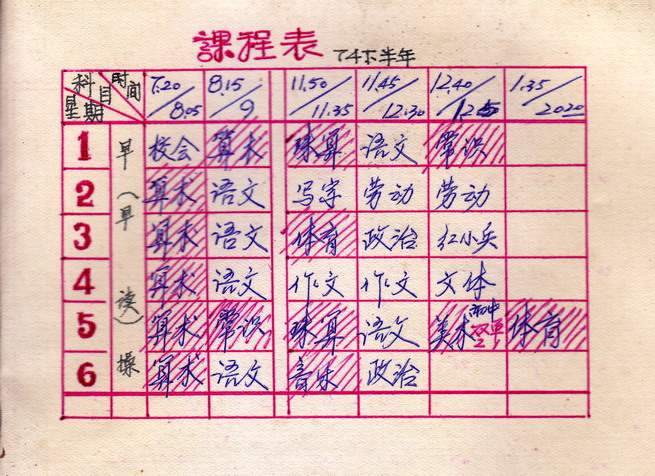 課程表 74下半年
科目 时间 星期 7.20/8.05 8.15/9 11.50/11.35 11.45/12.30 12.40/ 1.35/2020
早(早读)操
1 校会 算术 珠算 语文 常识
2 算术 语文 写字 劳动 劳动
3 算术 语文 体育 政治 红小兵
4 算术 语文 作文 作文 文体
5 算术 常识 珠算 语文 美术 体育
6 算术 语文 音乐 政治